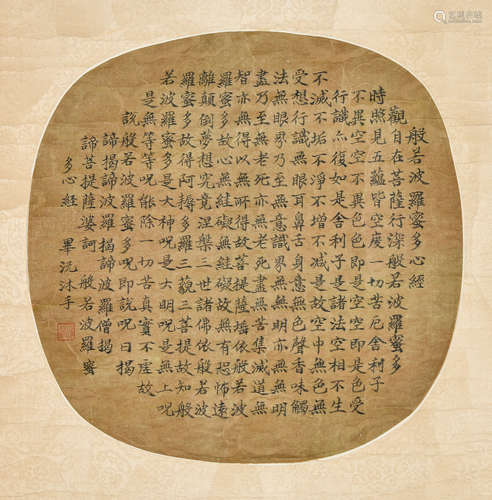 般若波羅蜜多心經
觀自在菩薩行深般若波羅蜜多
時照見五蘊皆空度一切苦厄舍利子
不異空空不異色色即是空空即是色受
行識亦復如是舍利子是諸法空相不生
不滅不垢不淨不增不減是故空中無色無
受想行識無眼耳鼻舌身意無色聲香味觸
法無眼界乃至無意識界無無明亦無無明
盡乃至無老死亦無老死盡無苦集滅道無
智亦無得以無所得故菩提薩埵依般若波
羅蜜多故心無絓礙無絓礙故無有恐怖遠
離顛倒夢想究竟涅槃三世諸佛依般若波
羅蜜多故得阿耨多羅三藐三菩提故知般
若波羅蜜多是大神呪是大明呪是無上呪
是無等等呪能除一切苦真實不虛故
說般若波羅蜜多呪即說呪曰揭
諦揭諦波羅揭諦波羅僧揭
諦菩提薩婆訶 般若波羅蜜
多心經 畢沅沐手